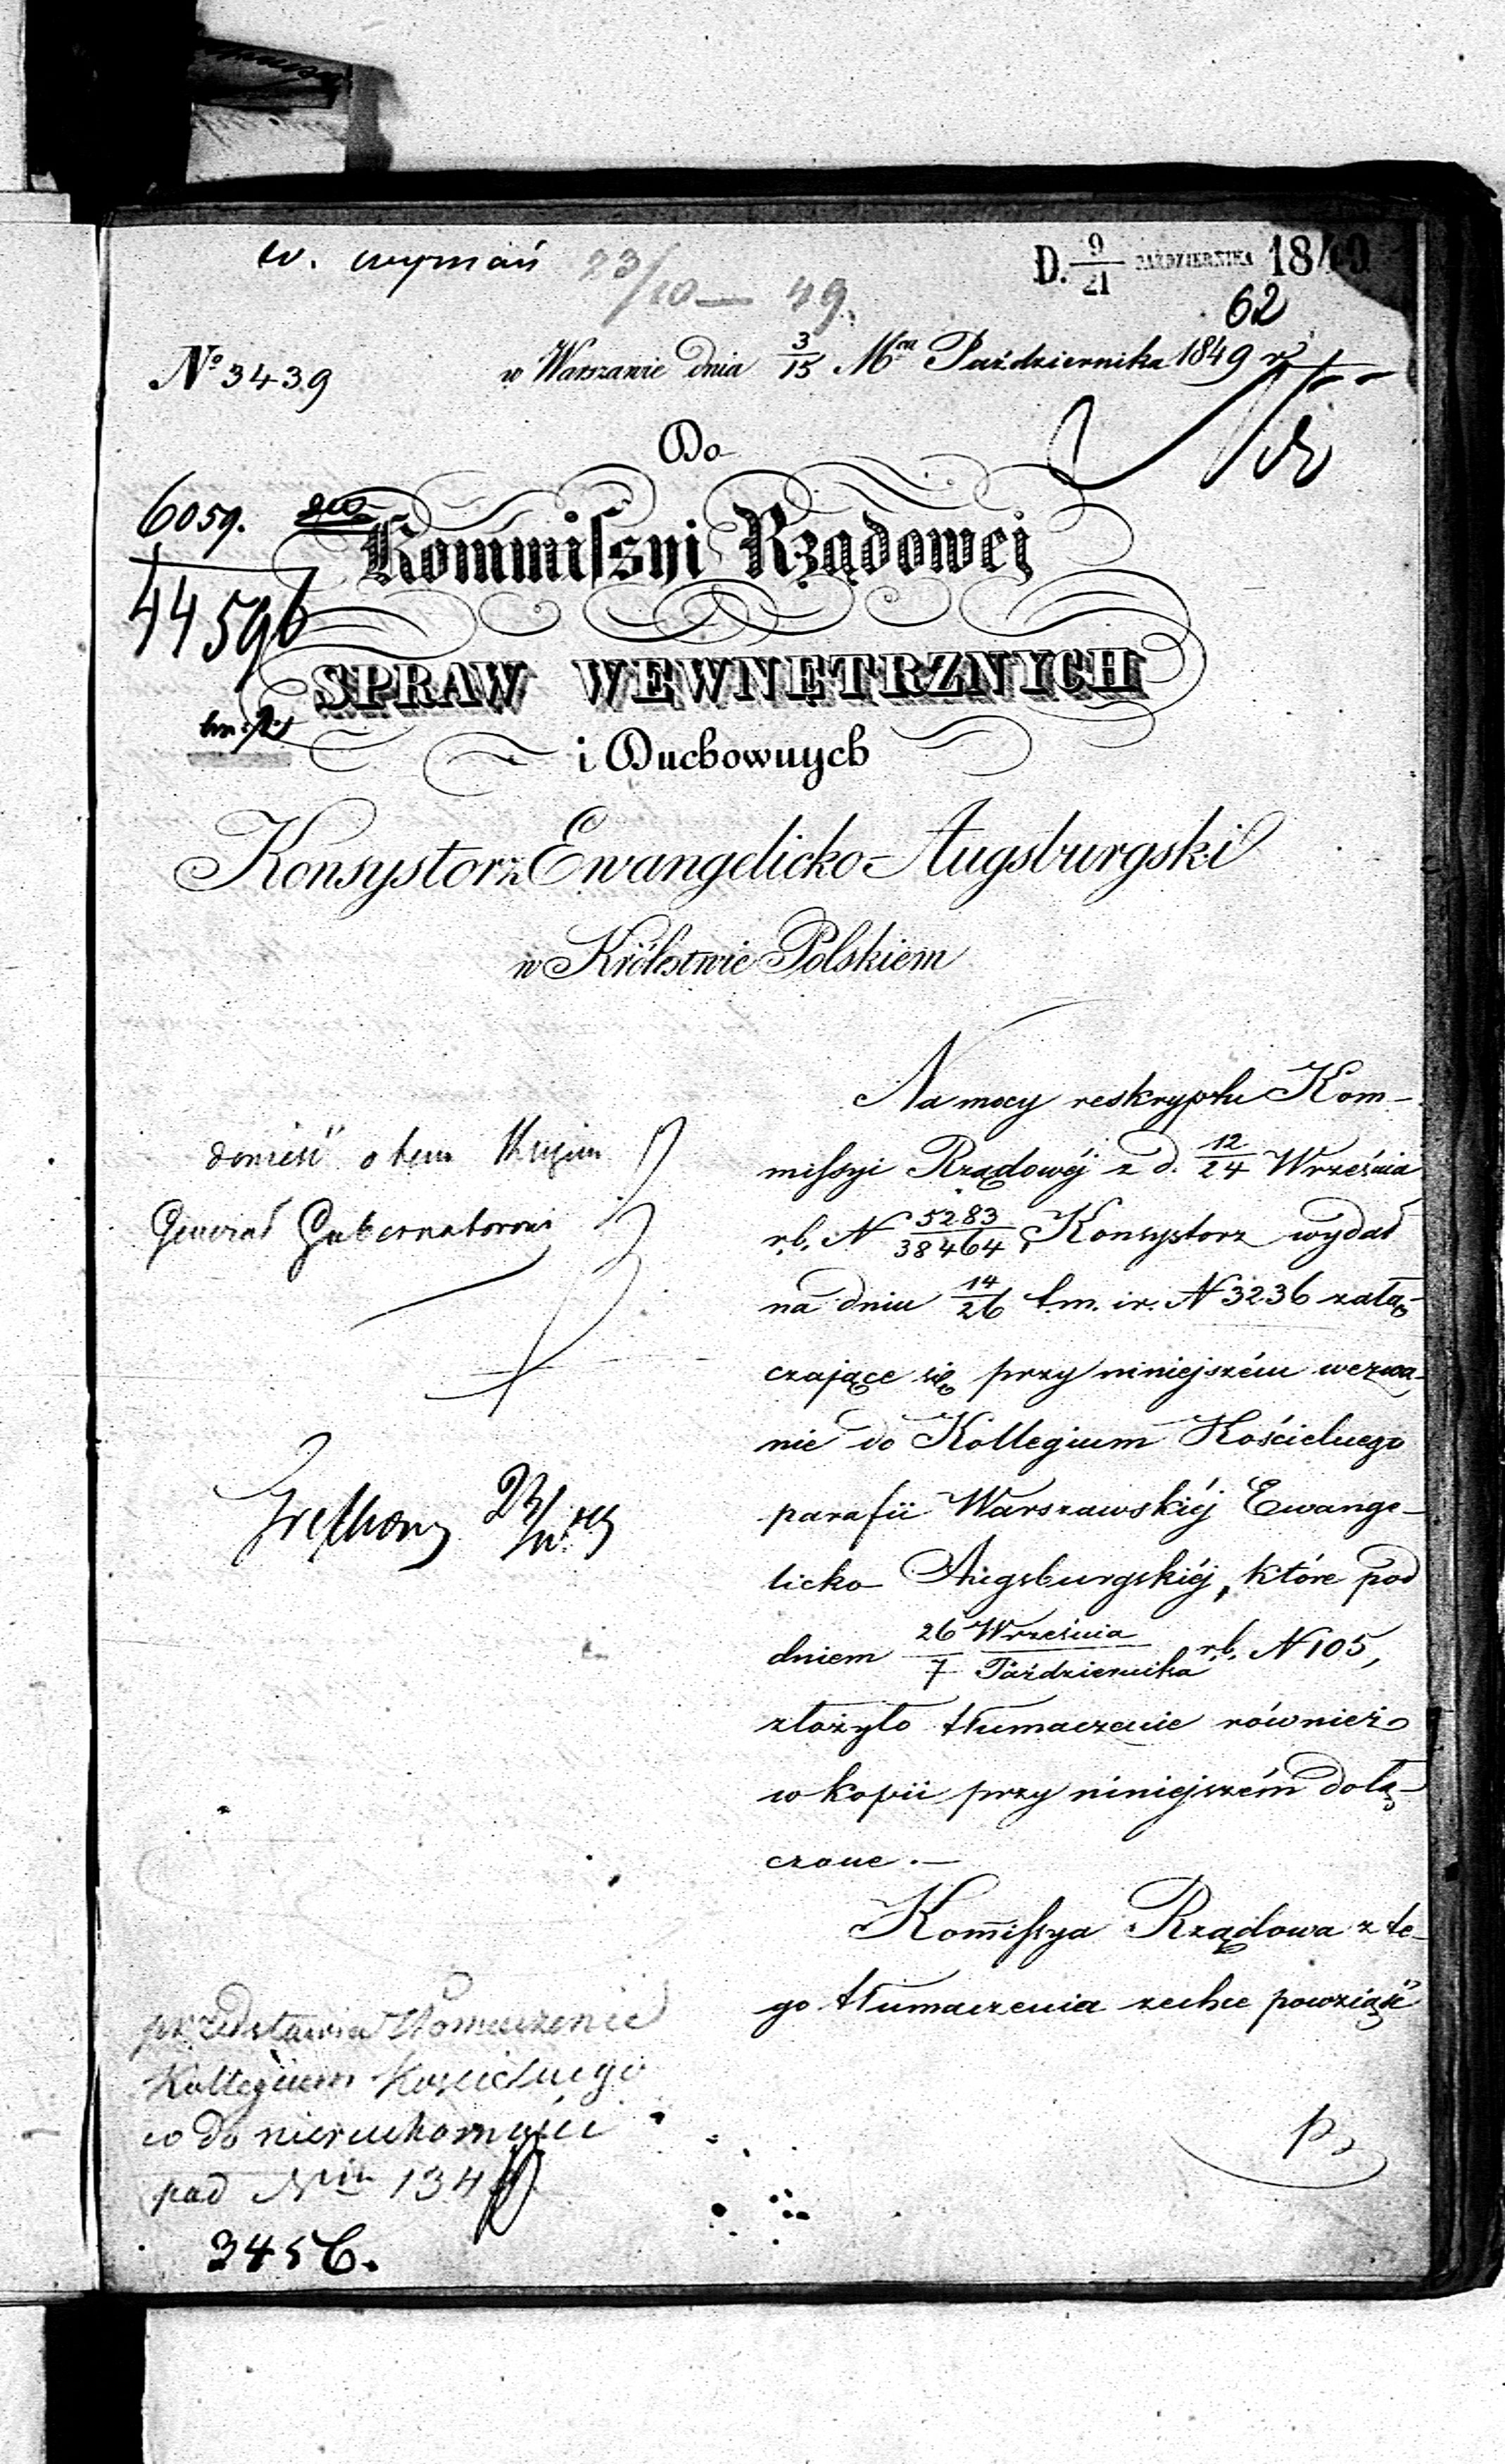 D. 9/21 PAŹDZIERNIKA 1849
23/10 — 49.
62
№ 3439
w Warszawie dnia 3/15 Mca Października 1849 r.
Do
6059.
44596
Kommissyi Rządowej
SPRAW WEWNĘTRZNYCH
i Duchownych
Konsystorz Ewangelicko-Augsburgski
w Królestwie Polskiem
Na mocy reskryptu Kom-
missyi Rządowéj z d. 12/24 Września
r.b. N 5283/38464, Konsystorz wydał
na dniu 14/26 t.m. i r. N 3236 załą-
czające się przy niniejszém wezwa-
nie do Kollegium Kościelnego
parafii Warszawskiéj Ewange-
licko Augsburgskiéj, które pod
dniem 26 Września/7 Października r.b. N 105,
złożyło tłumaczenie również
w kopii przy niniejszém dołą-
czone. —
Kommissya Rządowa z te-
go tłumaczenia zechce powziąść
donieść o tem
Generał Gubernatorowi
przedstawia tłomaczenie
Kollegium Kościelnego
co do nieruchomości
pod Nrm 134
3456.